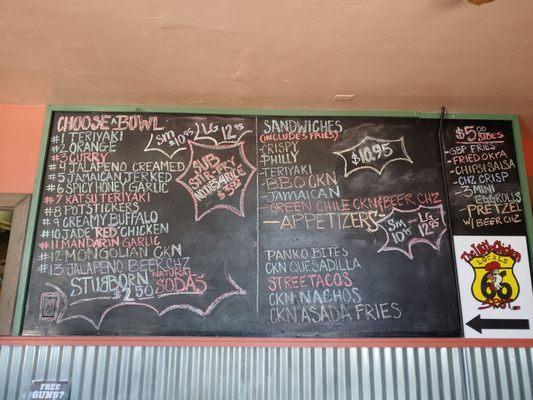 CHOOSE A BOWL
SM 10.95 LG 12.95
#1 TERIYAKI
#2 ORANGE
#3 CURRY
#4 JALAPENO CREAMED
#5 JAMAICAN JERKED
#6 SPICY HONEY GARLIC
#7 KATSU TERIYAKI
#8 POTSTICKERS
#9 CREAMY BUFFALO
#10 JADE RED CHICKEN
#11 MANDARIN GARLIC
#12 MONGOLIAN CKN
#13 JALAPENO BEER CHZ
SUB
STIR FRY
NOODLES
STUBBORN
NATURAL
SODAS
SANDWICHES
(INCLUDES FRIES)
CRISPY
PHILLY
TERIYAKI
BBQ CKN
JAMAICAN
GREEN CHILE CKN & BEER CHZ
$10.95
APPETIZERS
SM 10.95
LG 12.95
PANKO BITES
CKN QUESADILLA
STREETACOS
CKN NACHOS
CKN ASADA FRIES
$5.00 SIDES
GBP FRIES
FRIED OKRA
CHIPS/SALSA
CHZ CRISP
3 MINI
EGGROLLS
PRETZEL
W/ BEER CHZ
LOCALS
66
FREE
GUNS?